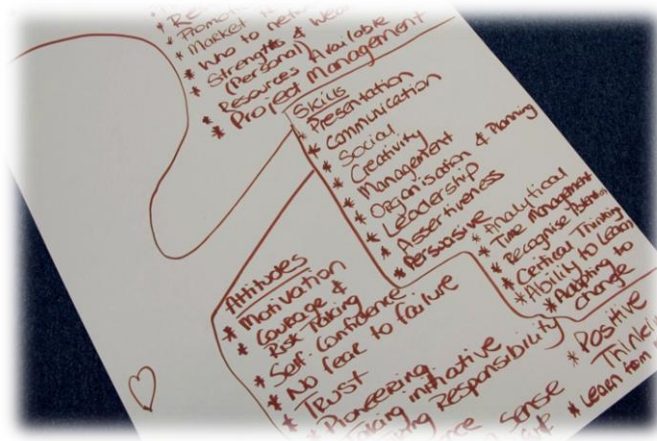 * Market
* Who to network
* Strengths & Weak
(Personal)
* Resources Available
* Project Management
Skills
* Presentation
* Communication
* Social
* Creativity
* Management
* Organisation & Planning
* Leadership
* Assertiveness
* Persuasive
* Analytical
* Time Management
* Recognise
* Critical Thinking
* Ability to Learn
* Adapting to
change
Attitudes
* Motivation
* Courage &
Risk Taking
* Self-Confidence
* No fear to failure
* Trust
* Pioneering
Taking initiative
Responsibility
Sense
* Positive
Thinking
* Learn from